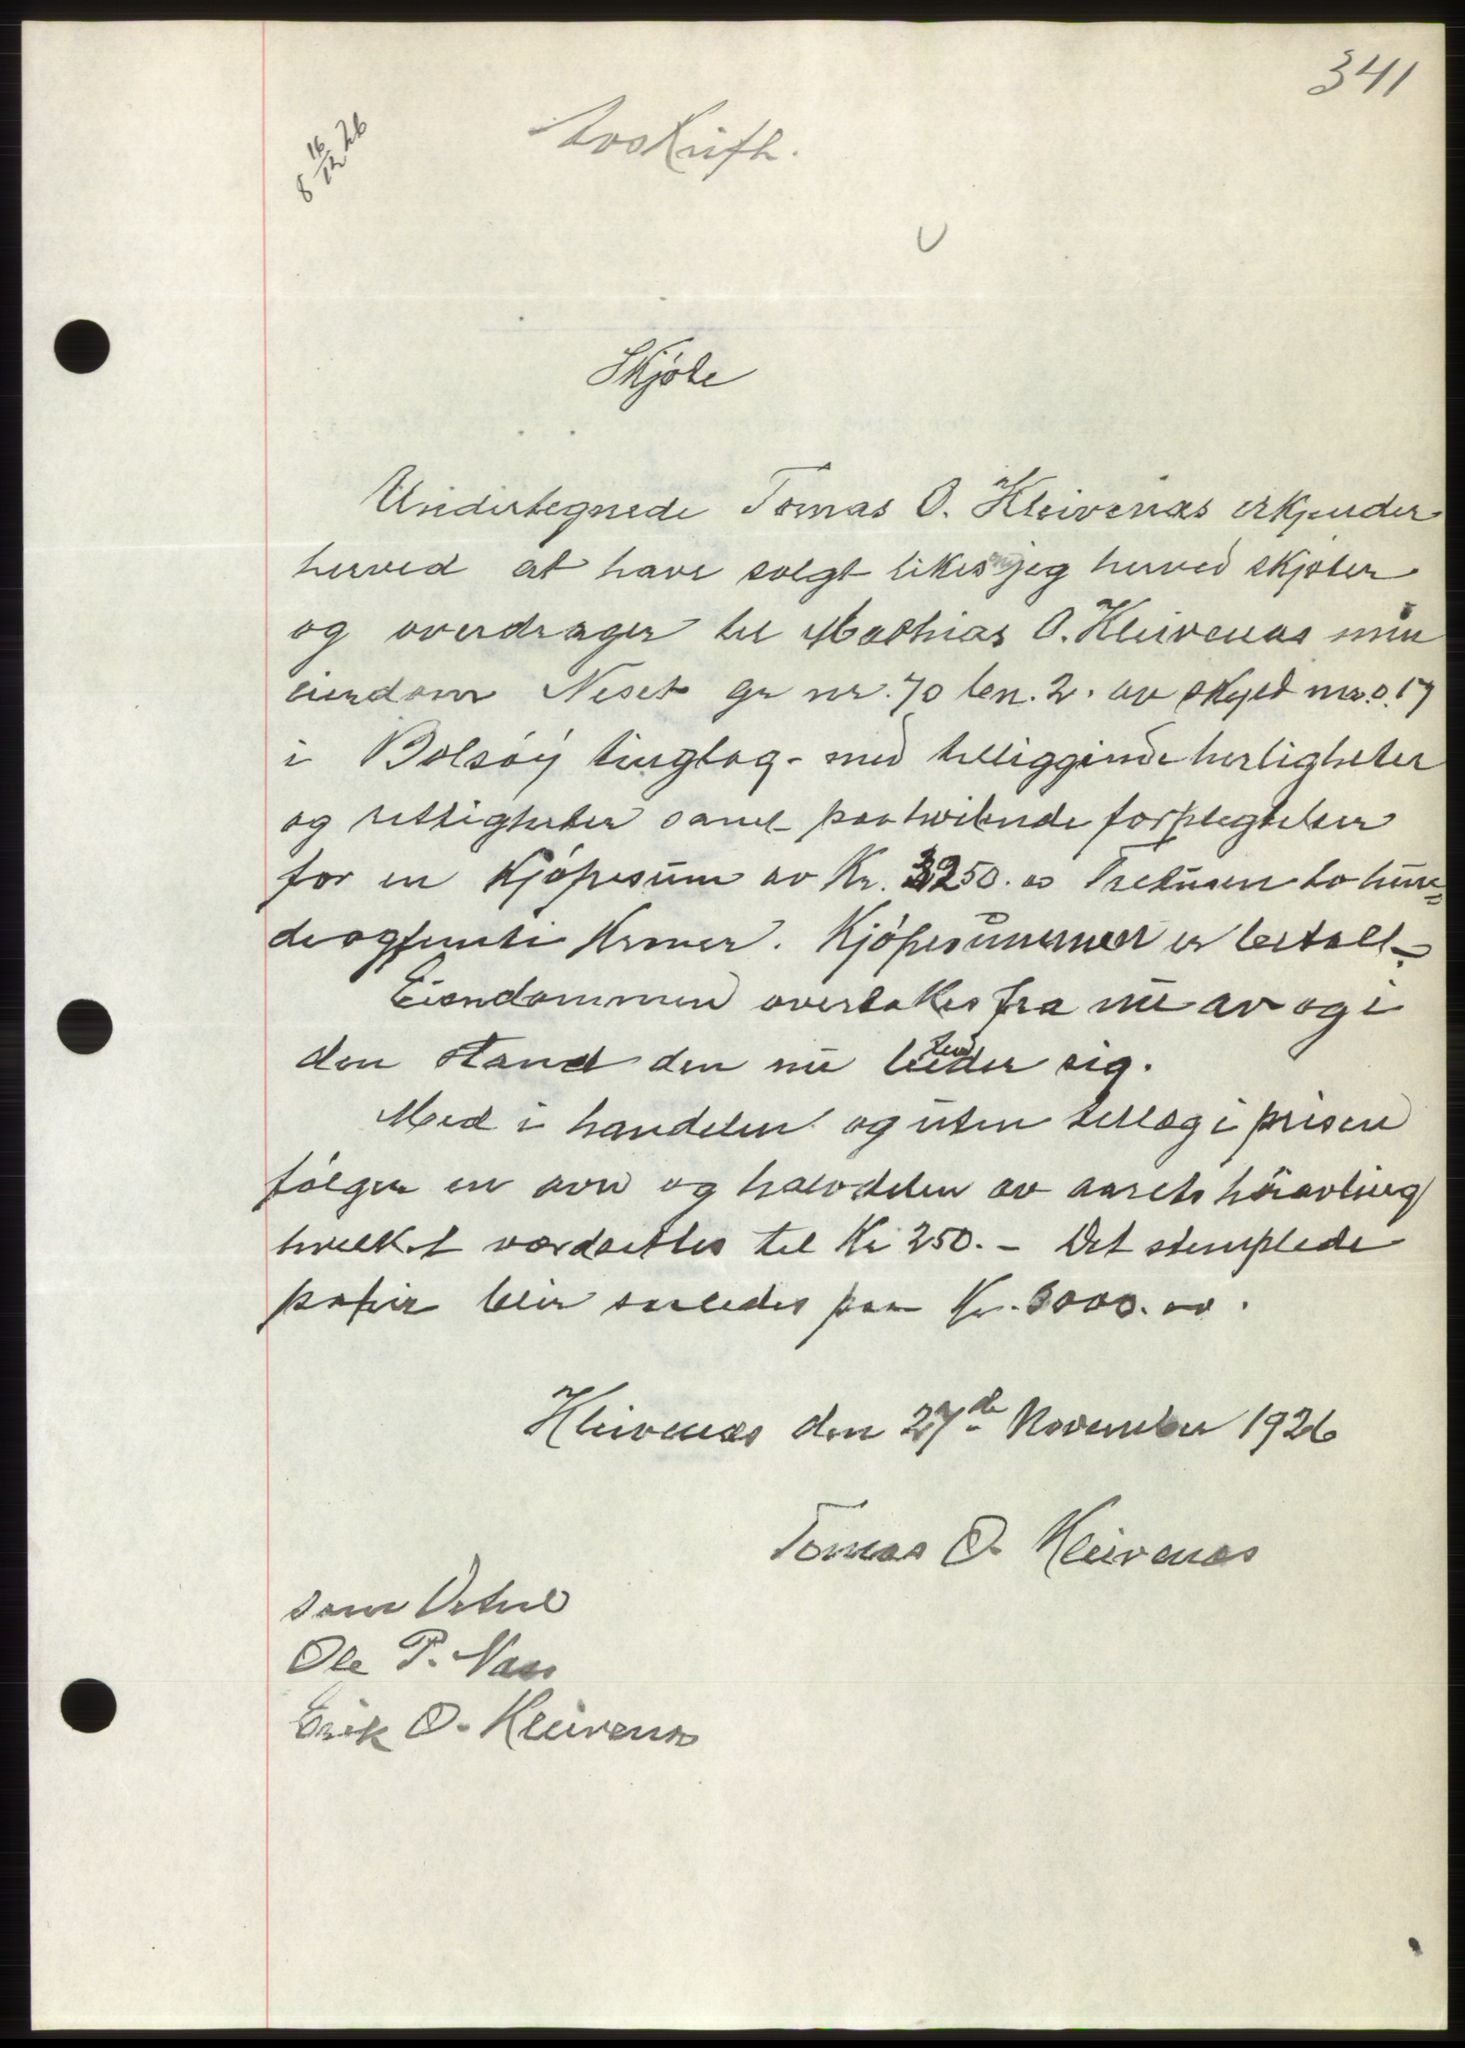 341
8 16/12 26
Avskrift.
Skjøte
Undertegnede Tomas O. Kleivenæs erkjender
herved at have solgt likesom jeg herved skjøter
og overdrager til Mathias O. Kleivenæs min
eiendom Neset gr nr. 70 bn. 2. av skyld mr. 0.17
i Bolsøy tinglag - med tilliggende herligheter
og rettigheter samt paahvilende forplegtelser
for en Kjøpesum av Kr. 3250.00 Tretusen to hun=
deogfemti Kroner. Kjøpesummen er betalt.
Eiendommen overtakes fra nu av og i
den stand den nu befinder sig.
Med i handelen og uten tillæg i prisen
følger en ovn og halvdelen av aarets høiavling
hvilket værdsættes til Kr 250. - Det stemplede
papir blir saaledes paa Kr. 3000.00.
Kleivenæs den 27de November 1926
Tomas O. Kleivenæs
som Vitne
Ole P. Næss
Erik O. Kleivenæs